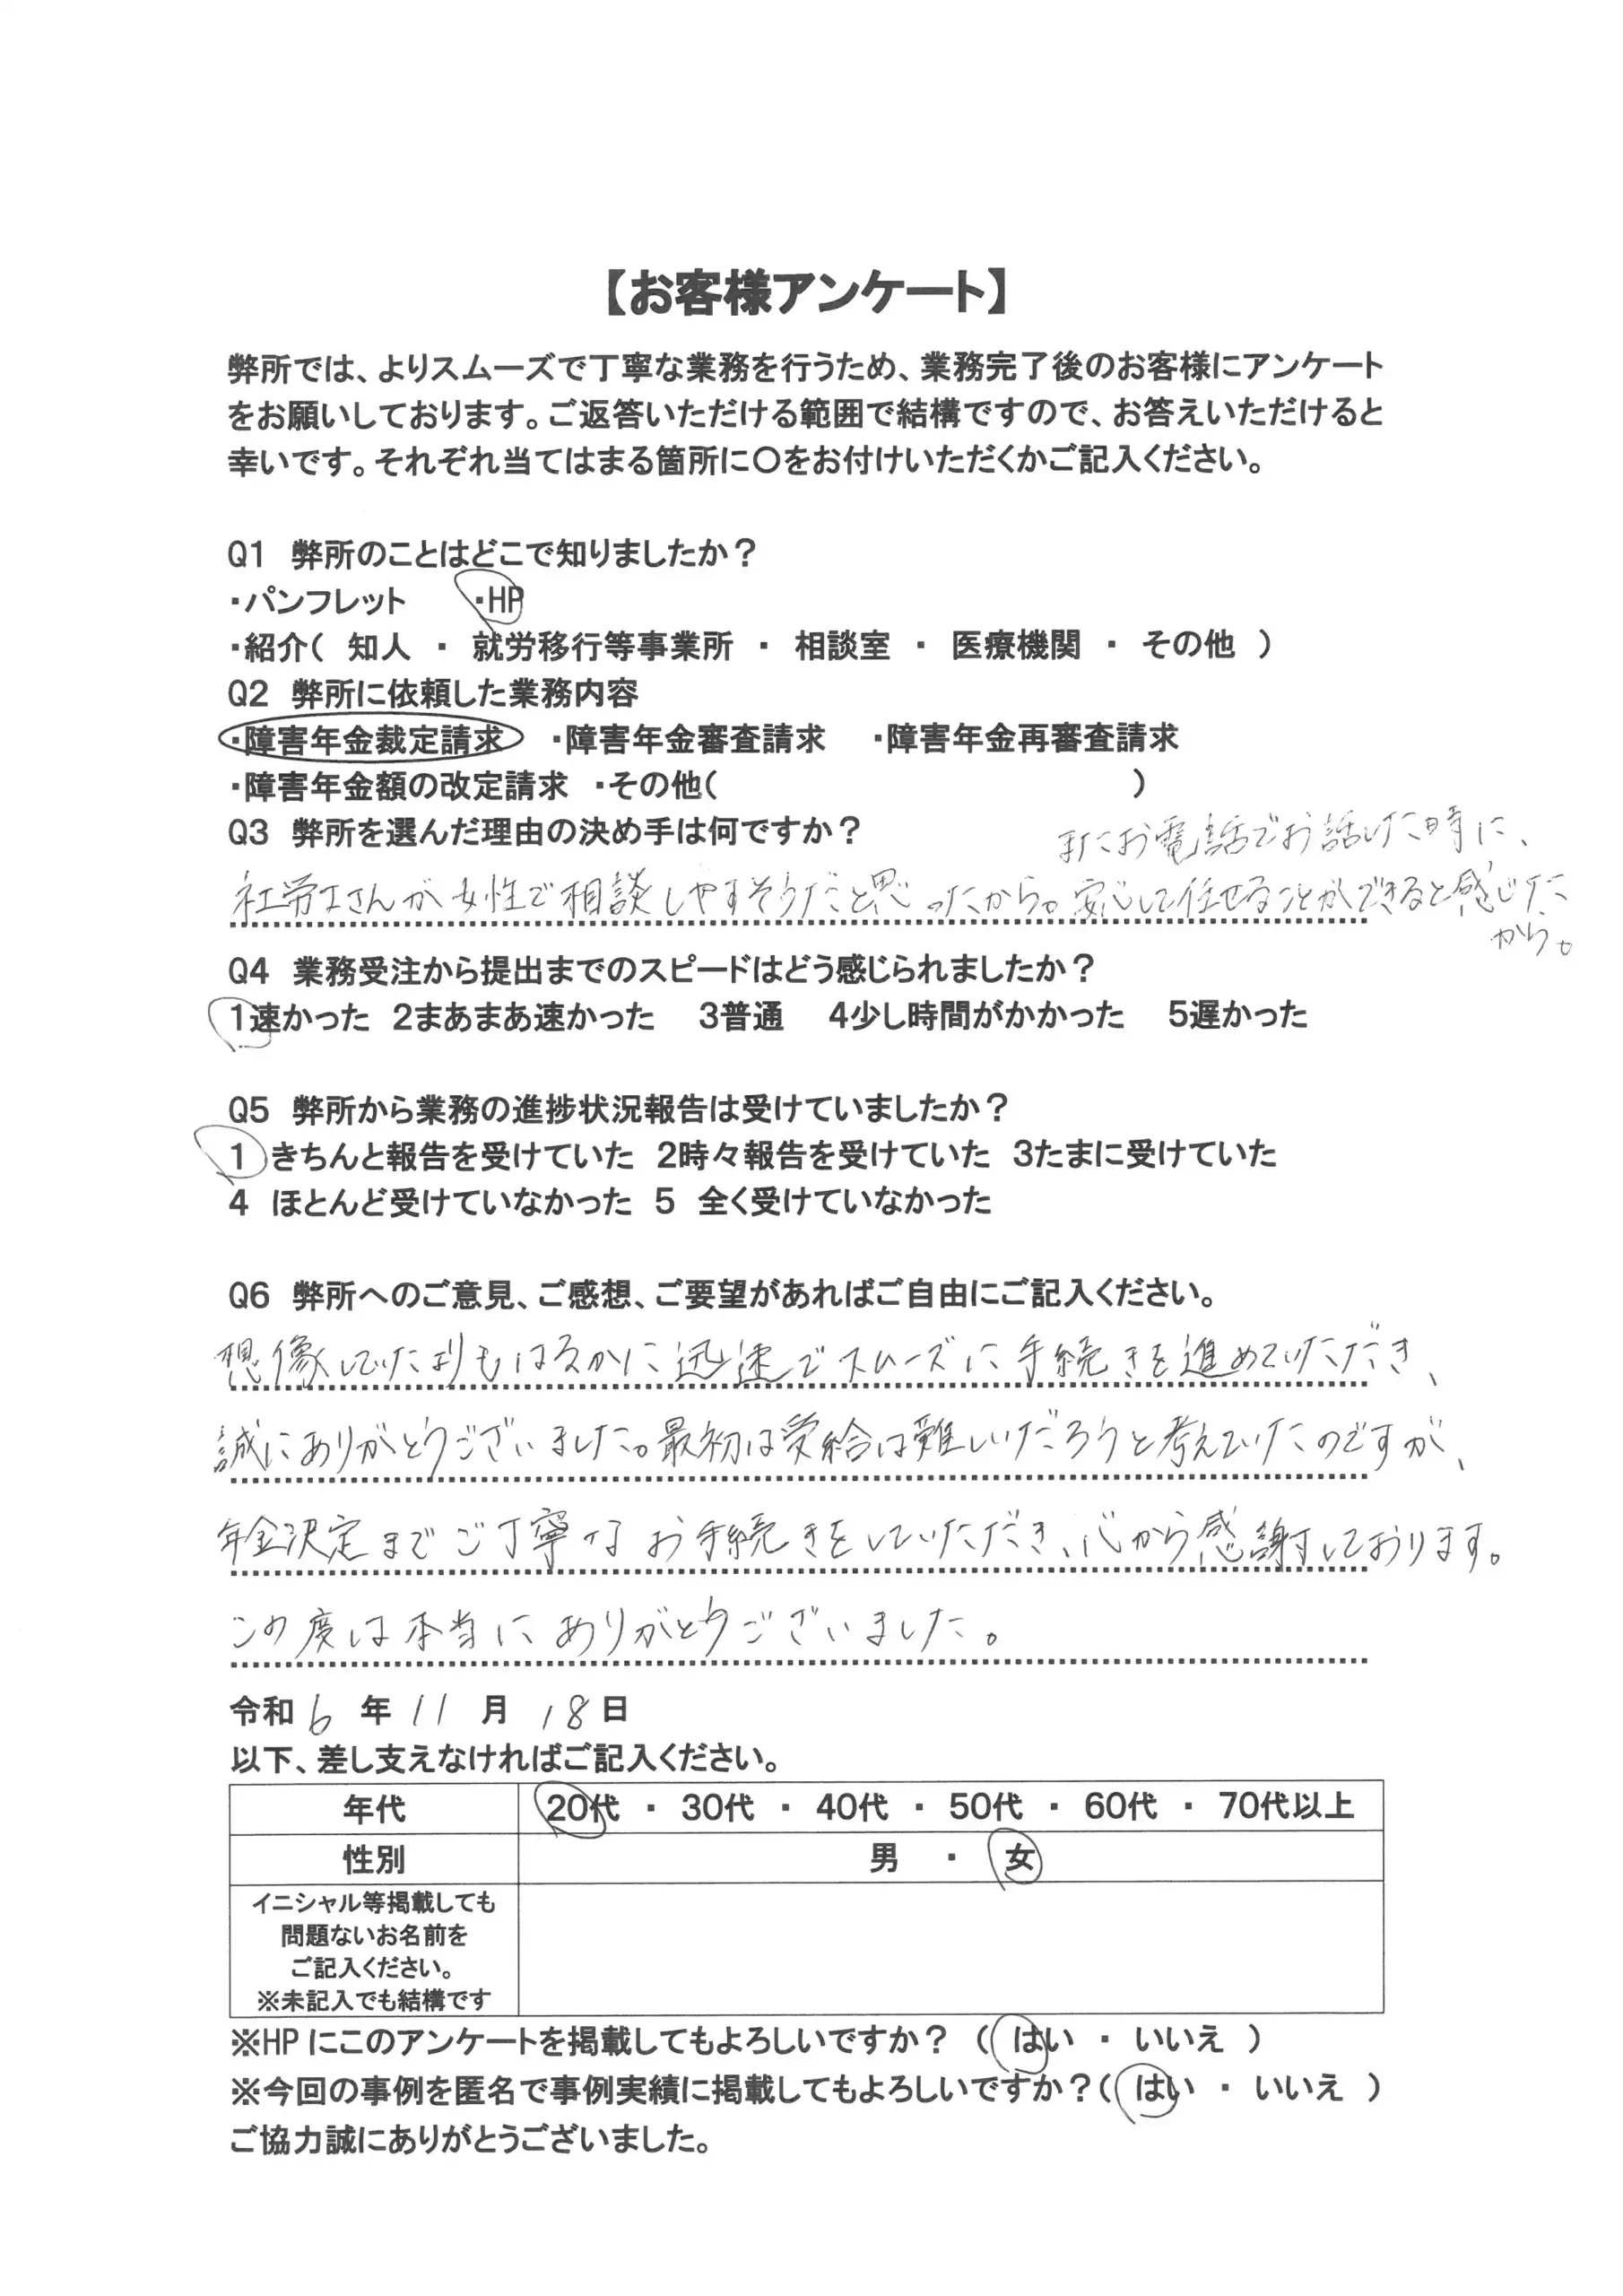 【お客様アンケート】
弊所では、よりスムーズで丁寧な業務を行うため、業務完了後のお客様にアンケート
をお願いしております。ご返答いただける範囲で結構ですので、お答えいただけると
幸いです。それぞれ当てはまる箇所に〇をお付けいただくかご記入ください。
Q1 弊所のことはどこで知りましたか？
・パンフレット ・HP
・紹介( 知人 ・ 就労移行等事業所 ・ 相談室 ・ 医療機関 ・ その他 )
Q2 弊所に依頼した業務内容
・障害年金裁定請求 ・障害年金審査請求 ・障害年金再審査請求
・障害年金額の改定請求 ・その他( )
Q3 弊所を選んだ理由の決め手は何ですか？
またお電話でお話した時に、
社労士さんが女性で相談しやすそうだと思ったから。安心して任せることができると感じた
から。
Q4 業務受注から提出までのスピードはどう感じられましたか？
1速かった 2まあまあ速かった 3普通 4少し時間がかかった 5遅かった
Q5 弊所から業務の進捗状況報告は受けていましたか？
1 きちんと報告を受けていた 2時々報告を受けていた 3たまに受けていた
4 ほとんど受けていなかった 5 全く受けていなかった
Q6 弊所へのご意見、ご感想、ご要望があればご自由にご記入ください。
想像していたよりもはるかに迅速でスムーズに手続きを進めていただき、
誠にありがとうございました。最初は受給は難しいだろうと考えていたのですが、
年金決定までご丁寧なお手続きをしていただき、心から感謝しております。
この度は本当にありがとうございました。
令和 6 年 11 月 18 日
以下、差し支えなければご記入ください。
年代 20代 ・ 30代 ・ 40代 ・ 50代 ・ 60代 ・ 70代以上
性別 男 ・ 女
イニシャル等掲載しても
問題ないお名前を
ご記入ください。
※未記入でも結構です
※HPにこのアンケートを掲載してもよろしいですか？ ( はい ・ いいえ )
※今回の事例を匿名で事例実績に掲載してもよろしいですか？( はい ・ いいえ )
ご協力誠にありがとうございました。